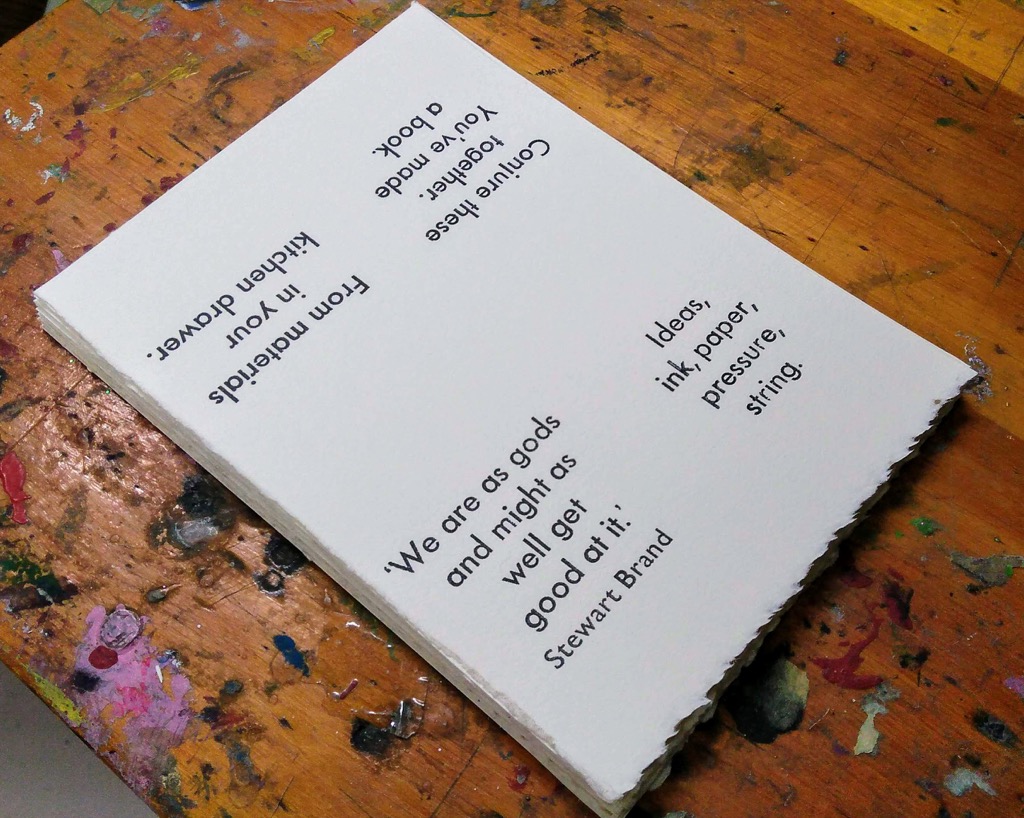 'We are as gods
and might as
well get
good at it.'
Stewart Brand
Ideas,
ink, paper,
pressure,
string.
From materials
in your
kitchen drawer.
Conjure these
together.
You've made
a book.